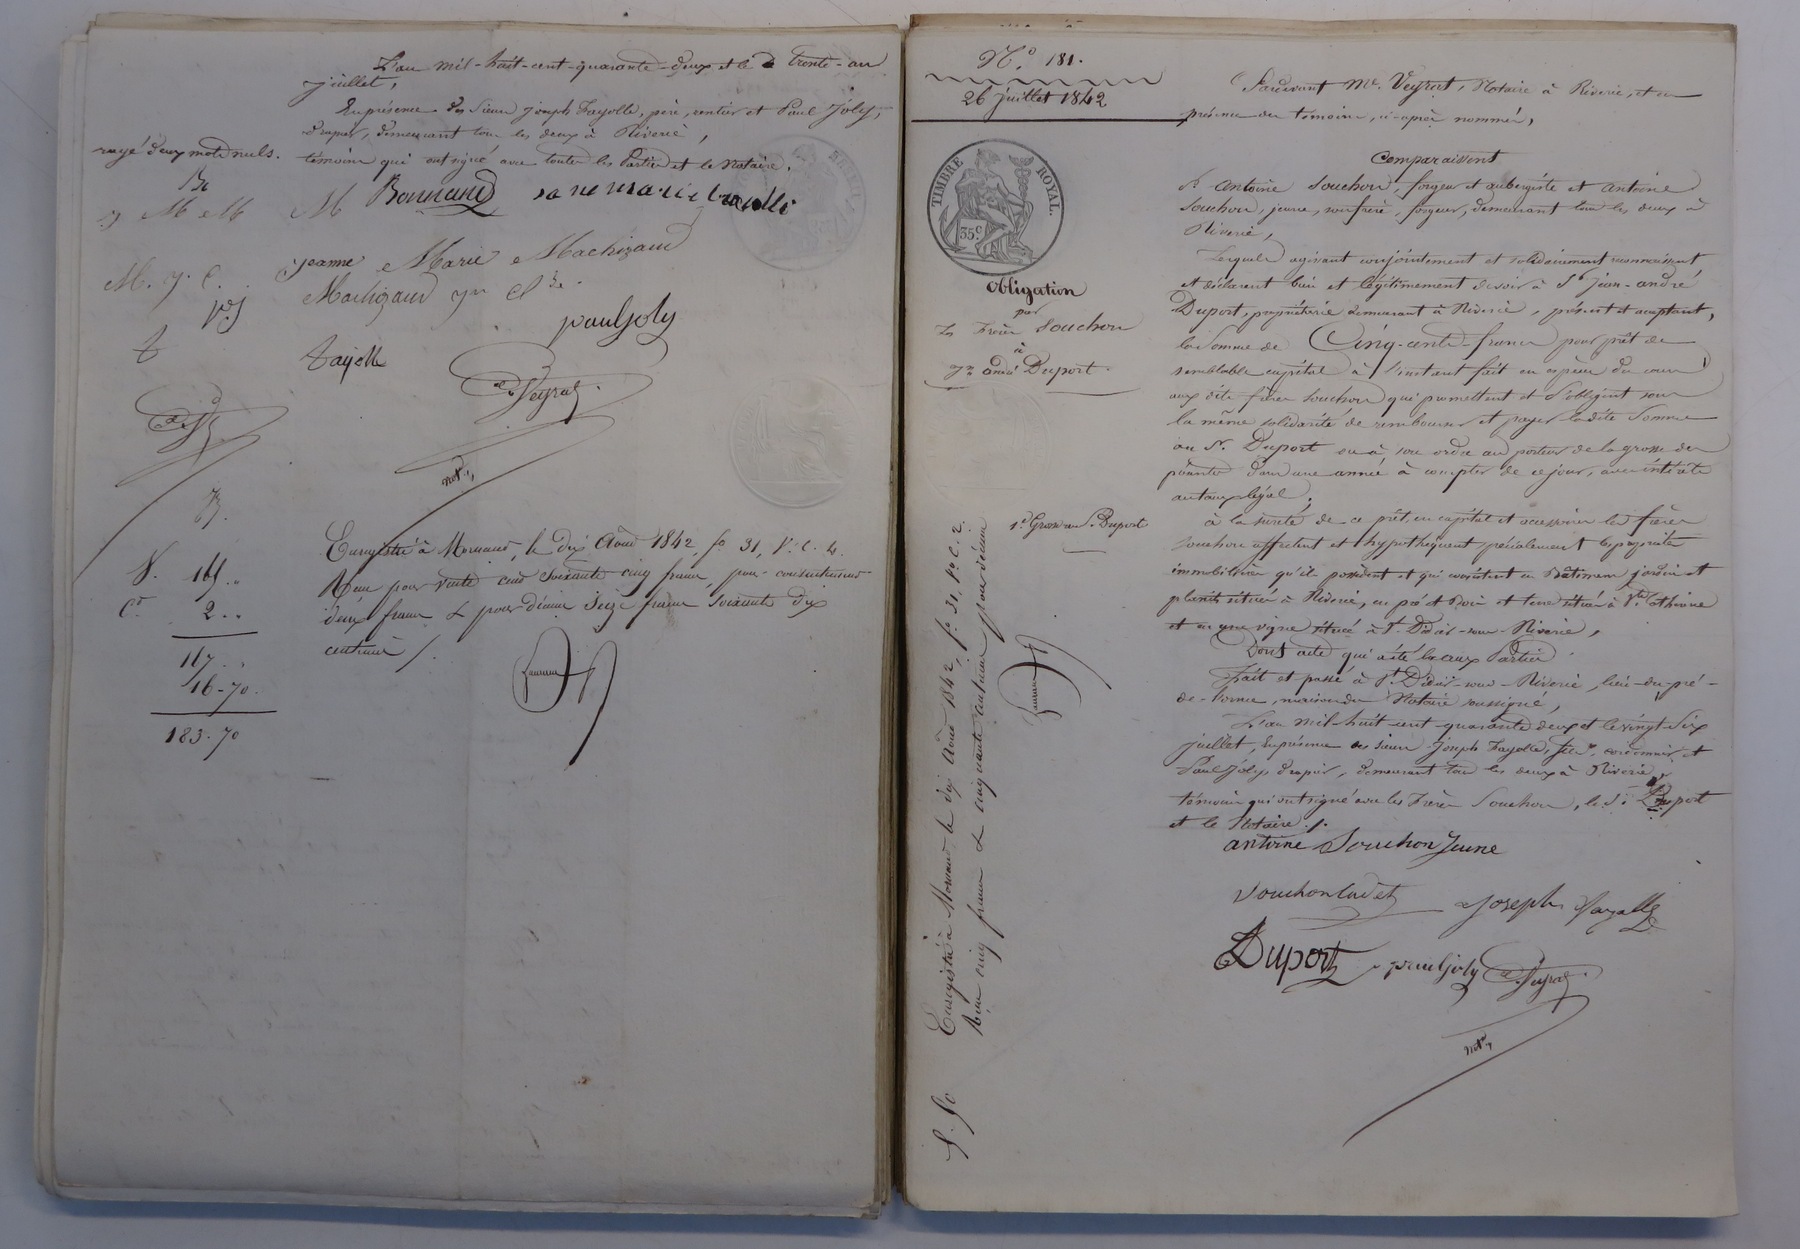 L'an mil-huit-cent-quarante-deux et le trente-un
juillet,
En présence des sieurs joseph fayolle, père, rentier et Paul Joly,
drapier, demeurant tous les deux à Riverie,
témoins qui ont signé avec toutes les Parties et le Notaire.
rayé deux mots nuls.
M Bonnand
M M
jeanne Marie Machizaud
M. j. C.
Machizaud
pauljoly
fayolle
Veyrat
notre
Enregistré à Mornant, le dix Août 1842, fo 31, V. C. 4.
Reçu pour vente cent soixante cinq francs, pour
deux francs & pour décime seize francs soixante dix
centimes /.
V. 165 "
Ct 2 "
167 "
16-70.
183.70
No. 181.
26 juillet 1842
TIMBRE ROYAL.
35c
Obligation
par
Les Frères Souchon
à
Jn andré Duport.
1e Grosse au S. Duport
Enregistré à Mornant, le dix Août 1842, fo 31, Ro C. 2.
Reçu cinq francs & cinquante centimes pour décime
5.50
Pardevant Me. Veyrat, Notaire à Riverie, et en
présence des témoins, ci-après nommés,
Comparaissent
Sr antoine Souchon, forgeur et aubergiste et antoine
Souchon, jeune, son frère, forgeur, demeurant tous les deux à
Riverie,
Lesquels agissant conjointement et solidairement reconnaissent
et déclarent bien et légitimement devoir à Sr jean-andré
Duport, propriétaire demeurant à Riverie, présent et acceptant,
la Somme de Cinq-cents-francs pour prêt de
semblable capital à l'instant fait en espèces du cours
aux dits frères Souchon qui promettent et s'obligent sous
la même solidarité de rembourser et payer ladite Somme
au Sr. Duport ou à son ordre au porteur de la grosse des
présentes dans une année à compter de ce jour, avec intérêts
au taux légal.
à la sureté de ce prêt, en capital et accessoires les frères
Souchon affectent et hypothèquent spécialement les propriétés
immobilières qu'ils possèdent et qui consistent en Bâtimens jardin et
située à Riverie, en pré et bois et terre située à Ste Cathérine
et en une vigne située à St. Didier-sous-Riverie,
Dont acte qui a été lu aux Parties.
Fait et passé à St. Didier-sous-Riverie, lieu-du-pré-
de-lorme, maison du Notaire soussigné,
L'an mil-huit-cent-quarante deux et le vingt-six
juillet, en présence des sieurs joseph fayolle, fils, cordonnier, et
Paul joly, drapier, demeurant tous les deux à Riverie,
témoins qui ont signé avec les Frères Souchon, le Sr. Duport
et le Notaire ./.
antoine Souchon Jeune
Souchon Cadet
joseph fayolle
Duport
pauljoly
Veyrat
notre